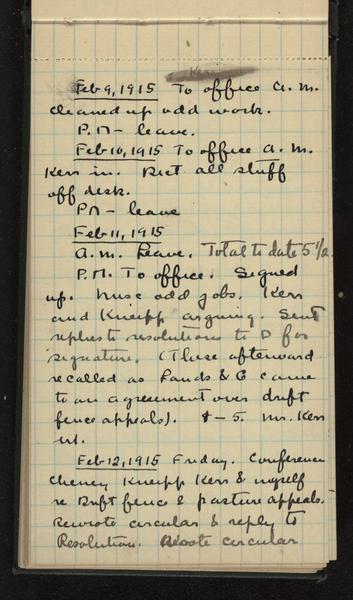 Feb 9, 1915 To office a.m.
cleaned up odd work.
P.M - leave.
Feb 10, 1915 To office a.m.
Kerr in. all stuff
off desk.
PM - leave
Feb 11, 1915
a.m. Leave. Total to date 5 1/2.
P.M. To office. Signed
up. odd jobs. Kerr
and Kneipp arguing. Sent
replies to resolutions to D for
signature. (These afterward
recalled as Lands & G came
to an agreement over drift
fence appeals). - 5. Mr. Kerr
Feb 12, 1915 Friday. Conference
Cheney Kneipp Kerr & myself
re Drift fence & pasture appeals.
Rewrote circular & reply to
Resolution. circular